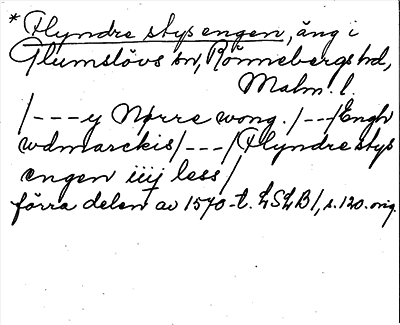 * Flyndre stys engen, äng i
Glumslövs sn, Rönnebergs hd,
Malm. l.
/---y Nørre wong. /--/Engh
wdmarckis/---/Flyndre stys
engen iiij less/
förra delen av 1570-t. LSLB1, s. 120. orig.